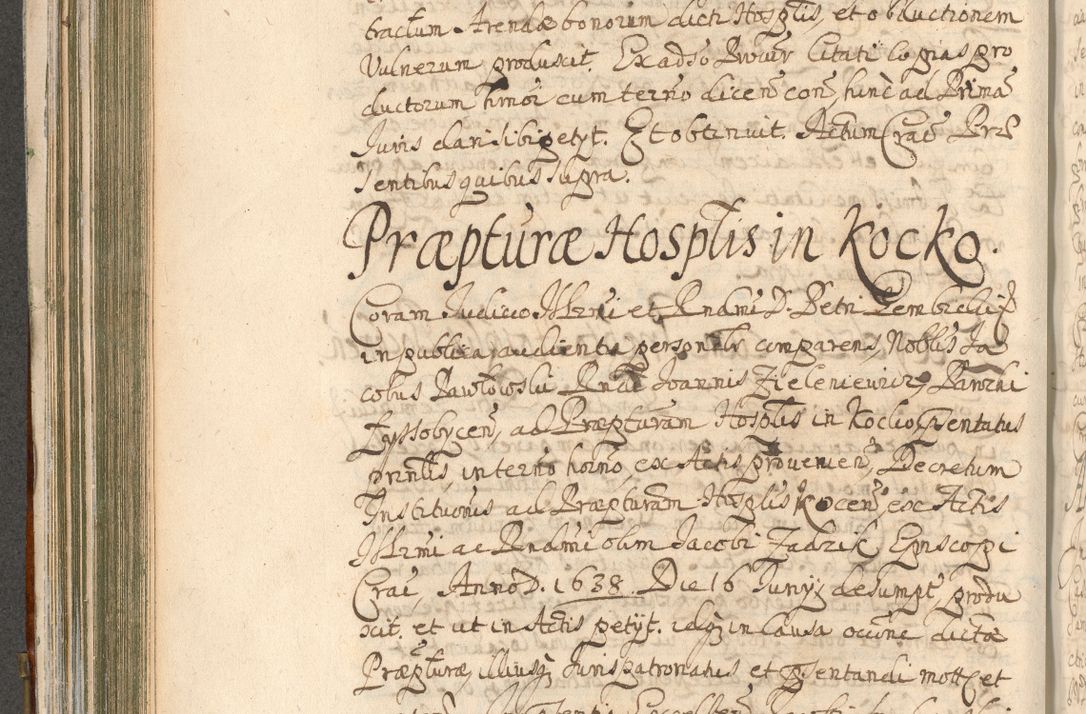 tractum Arendæ bonorum dicti Hosplis, et obductionem
Vulnerum produxit. Ex adso Provisr Citati copias pro
ductorum hmoi cum termo dicen con, hinc ad Prima
Juris dari sibi petyt. Et obtinuit. Actum Crac Præ
sentibus quibus supra.
Præpturæ Hosplis in Kocko.
Coram Judicio Illrmi et Rndmi D. Petri Gembicki Ep
in publica audientia personalr comparens, Noblis Ja
cobus Pawłowski Rndi Joannis Zieleniewicz, Parochi
Łyssobycen, ad Præpturam Hosplis in Kocko psentatus
prznlis, in termo horno, ex Actis provenien, Decretum
Institutionis ad Præpturam Hosplis Kocen, ex Actis
Illrmi ac Rndmi olim Jacobi Zadzik Episcopi
Crac, Anno D. 1638. Die 16 Junÿ desumpt, produ
xit. et ut in Actis petyt. idq in Causa occne dictæ
Præpturæ, illiusq Jurispatronatus et psentandi mott, et